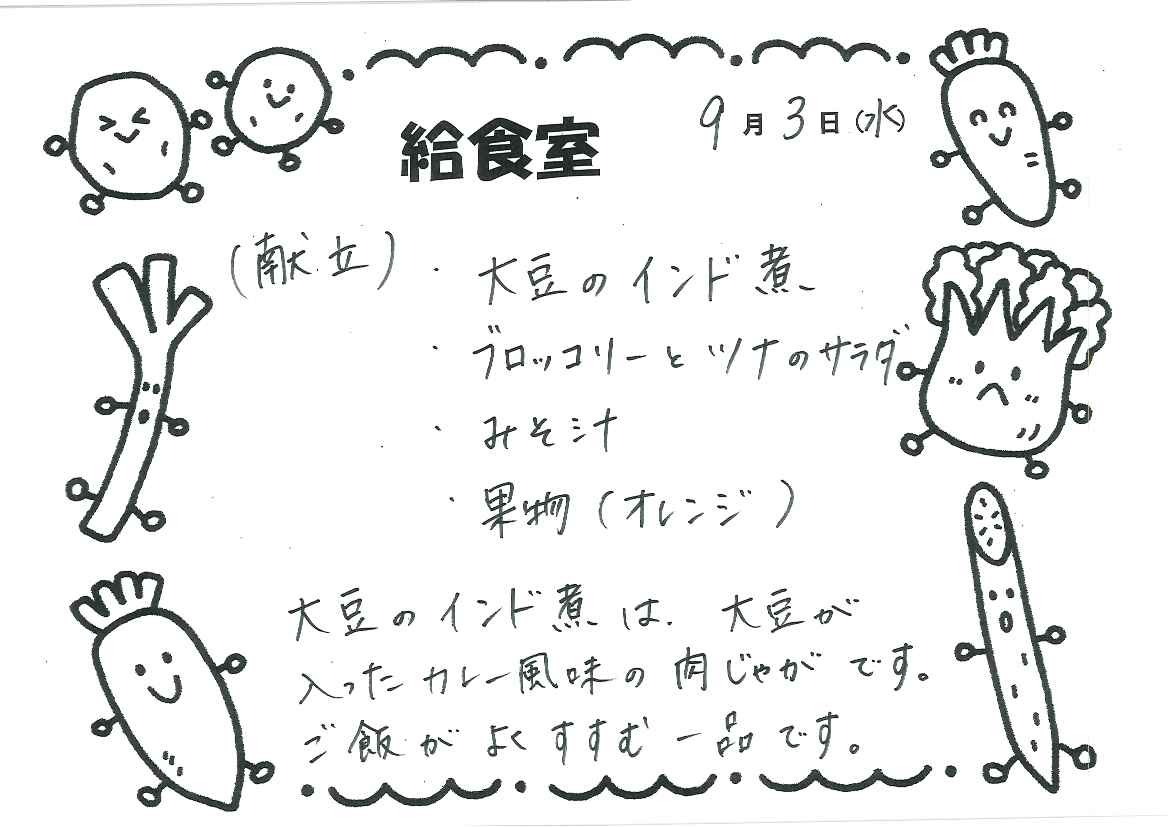 給食室
9月3日(水)
(献立)・大豆のインド煮
・ブロッコリーとツナのサラダ
・みそ汁
・果物(オレンジ)
大豆のインド煮は、大豆が
入ったカレー風味の肉じゃがです。
ご飯がよくすすむ一品です。